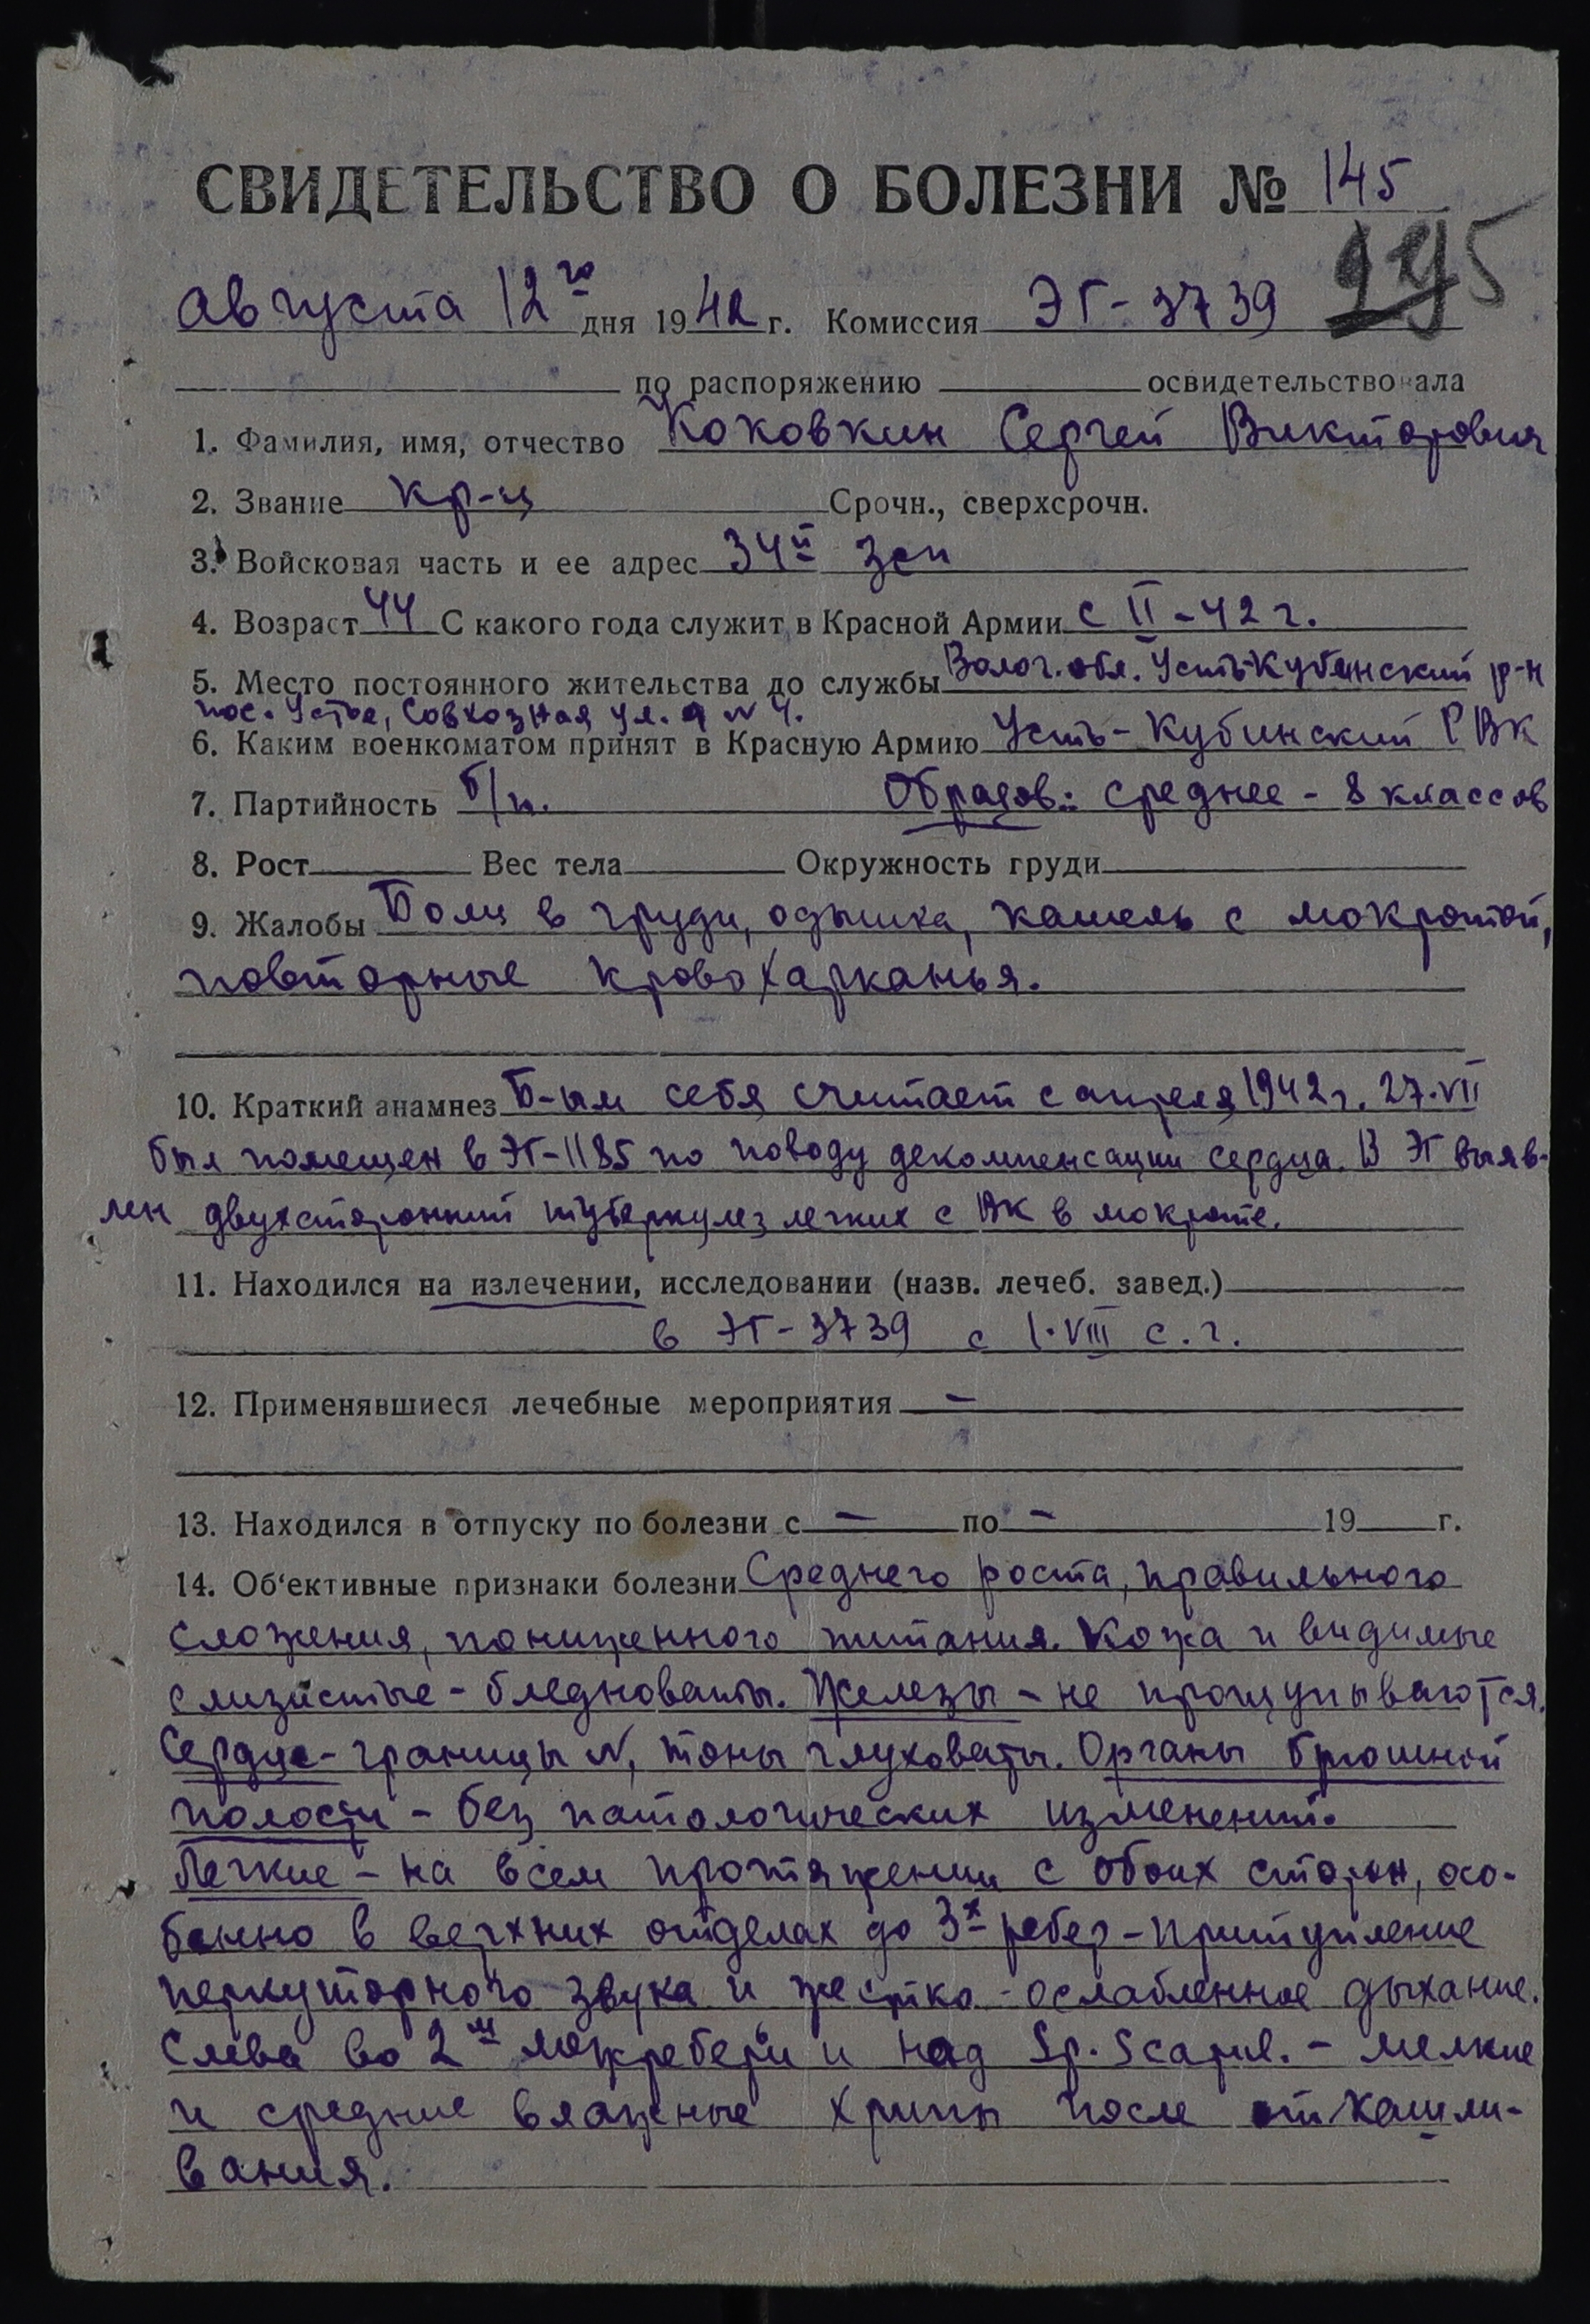 СВИДЕТЕЛЬСТВО О БОЛЕЗНИ № 145
295
августа 12го дня 1942 г. Комиссия ЭГ-3739
по распоряжению освидетельствовала
1. Фамилия, имя, отчество Коковкин Сергей Викторович
2. Звание кр-ц Срочн., сверхсрочн.
3. Войсковая часть и ее адрес 34й зсп
4. Возраст 44 С какого года служит в Красной Армии с II-42 г.
5. Место постоянного жительства до службы Волог. обл. Усть-Кубинский р-н
пос. Устье, Совхозная ул. д № 4.
6. Каким военкоматом принят в Красную Армию Усть-Кубинский РВК
7. Партийность б/п. Образов: среднее - 8 классов
8. Рост Вес тела Окружность груди
9. Жалобы Боли в груди, одышка, кашель с мокротой,
повторные кровохарканья.
10. Краткий анамнез Б-ым себя считает с апреля 1942 г. 27.VII
был помещен в ЭГ-1185 по поводу декомпенсации сердца. В ЭГ выяв-
лен двухсторонний туберкулез легких с ВК в мокроте.
11. Находился на излечении, исследовании (назв. лечеб. завед.)
в ЭГ-3739 с 1.VIII с.г.
12. Применявшиеся лечебные мероприятия -
13. Находился в отпуску по болезни с - по - 19 г.
14. Об'ективные признаки болезни Среднего роста, правильного
сложения, пониженного питания. Кожа и видимые
слизистые - бледноваты. Железы - не прощупываются.
Сердце - границы N, тоны глуховаты. Органы брюшной
полости - без патологических изменений.
Легкие - на всем протяжении с обоих сторон, осо-
бенно в верхних отделах до 3х ребер - притупление
перкуторного звука и жестко-ослабленное дыхание.
Слева во 2м межреберьи и над Sp. Scapul. - мелкие
и средние влажные хрипы после откашли-
вания.